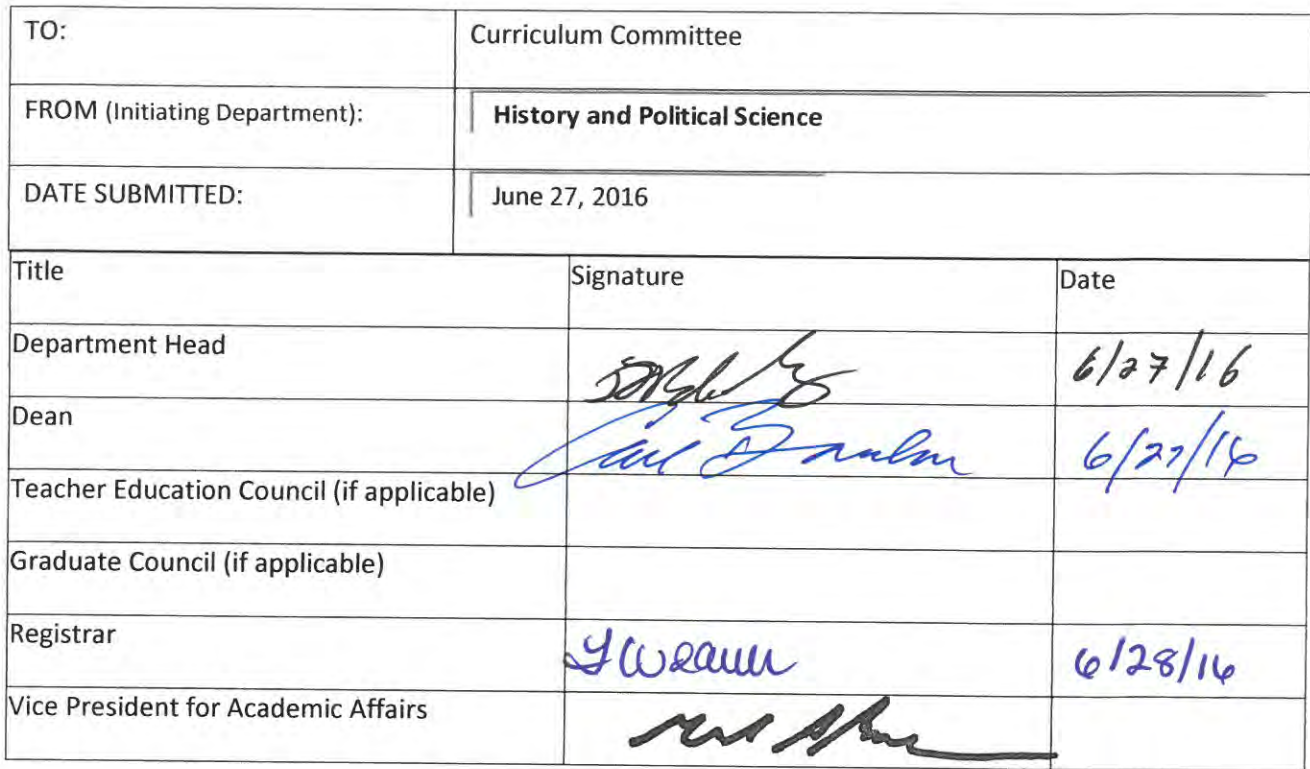 TO: Curriculum Committee
FROM (Initiating Department): History and Political Science
DATE SUBMITTED: June 27, 2016
Title Signature Date
Department Head 6/27/16
Dean 6/27/16
Teacher Education Council (if applicable)
Graduate Council (if applicable)
Registrar 6/28/16
Vice President for Academic Affairs